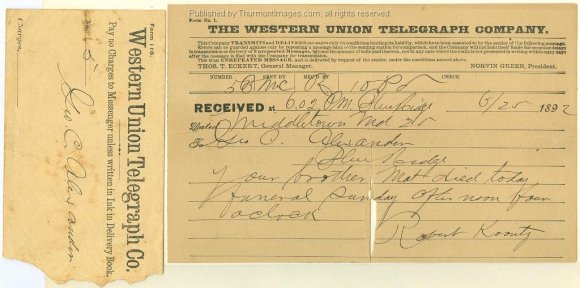 Published by Thurmontimages.com, all rights reserved
Form No. 1.
THE WESTERN UNION TELEGRAPH COMPANY.
This Company TRANSMITS and DELIVERS messages only on conditions limiting its liability, which have been assented to by the sender of the following message.
Errors can be guarded against only by repeating a message back to the sending station for comparison, and the Company will not hold itself liable for errors or delays
in transmission or delivery of Unrepeated Messages, beyond the amount of tolls paid thereon, nor in any case where the claim is not presented in writing within sixty days
after the message is filed with the Company for transmission.
This is an UNREPEATED MESSAGE, and is delivered by request of the sender, under the conditions named above.
THOS. T. ECKERT, General Manager. NORVIN GREEN, President.
NUMBER SENT BY REC'D BY CHECK
10 Pd
RECEIVED at 6.02 PM 6/25 1892
Dated Middletown Md 25
To Geo C. Alexander
Blue Ridge
Your brother Mat died today
funeral Sunday afternoon four
oclock
Robert Koontz
Form 1 G.
Western Union Telegraph Co.
Pay no Charges to Messenger unless written in Ink in Delivery Book.
No. 5
Geo C. Alexander
Charges,